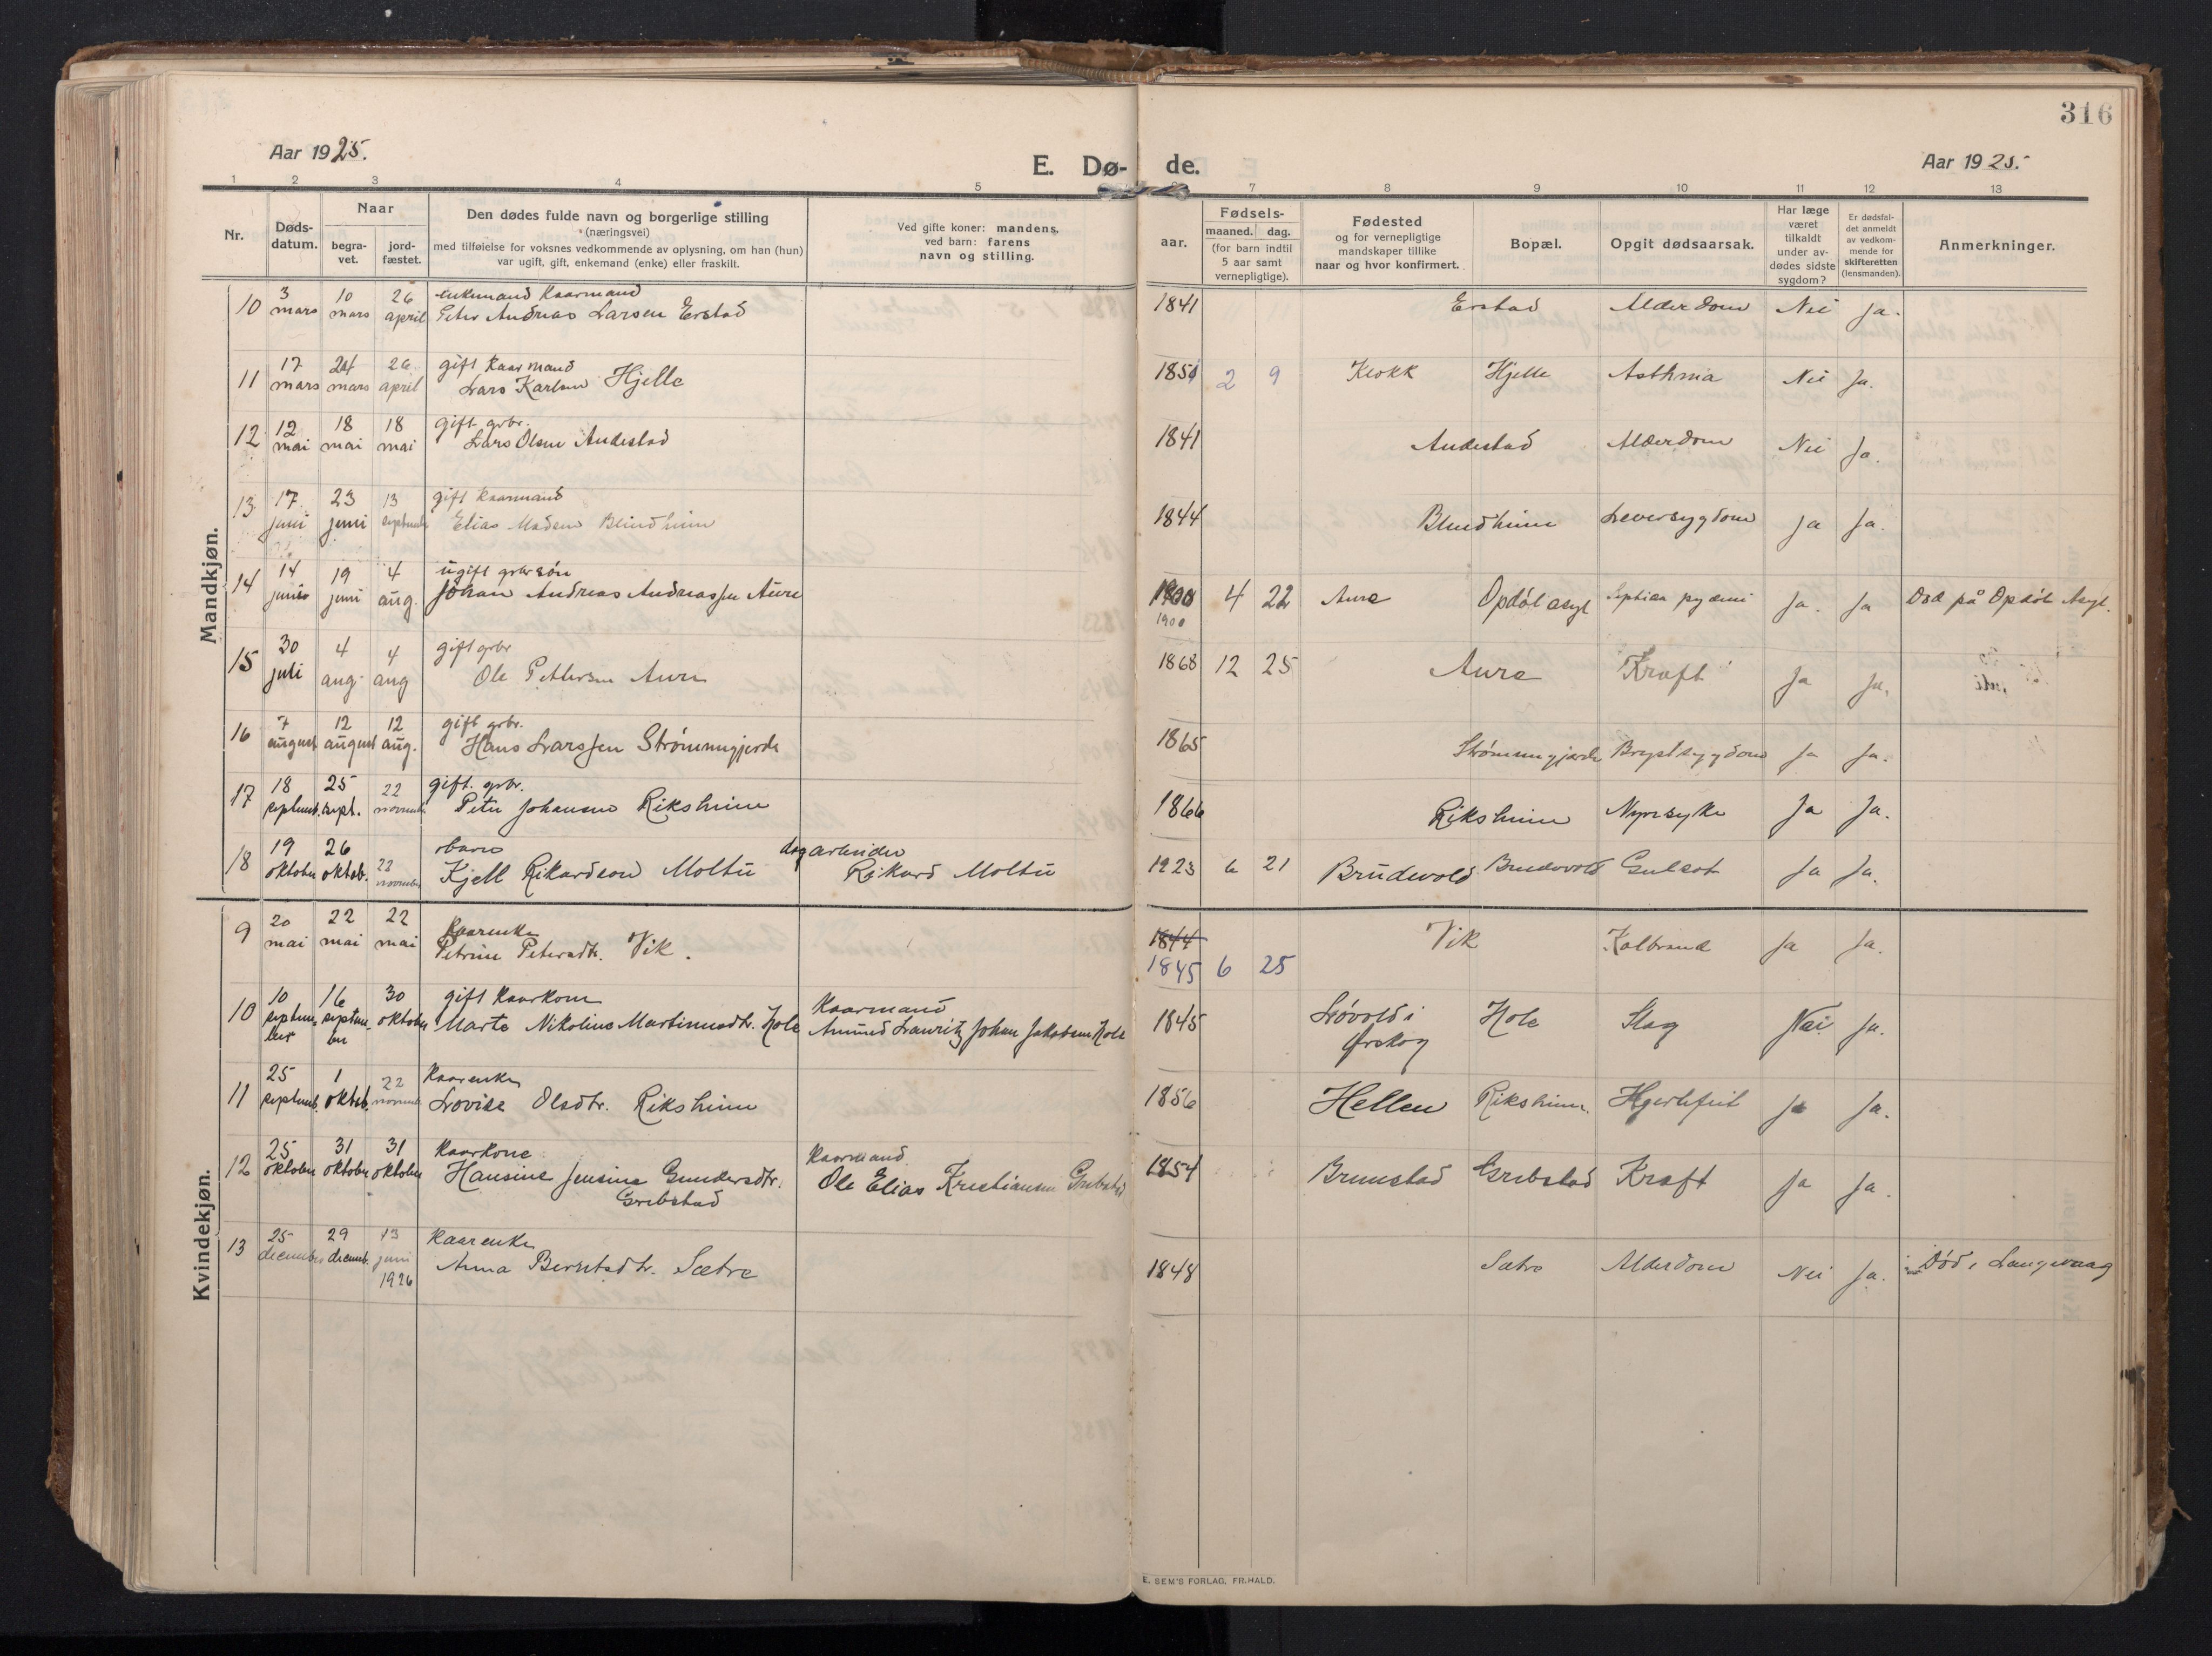 316
Aar 1925.
E. Dø-de.
Aar 1925.
1 2 3 4 5 6 7 8 9 10 11 12 13
Nr.
Døds-
datum.
Naar
begra-
vet.
jord-
fæstet.
Den dødes fulde navn og borgerlige stilling
(næringsvei)
med tilføielse for voksnes vedkommende av oplysning, om han (hun)
var ugift, gift, enkemand (enke) eller fraskilt.
Ved gifte koner: mandens,
ved barn: farens
navn og stilling.
aar.
Fødsels-
maaned. dag.
(for barn indtil
5 aar samt
vernepligtige).
Fødested
og for vernepligtige
mandskaper tillike
naar og hvor konfirmert.
Bopæl.
Opgit dødsaarsak.
Har læge
været
tilkaldt
under av-
dødes sidste
sygdom?
Er dødsfal-
det anmeldt
av vedkom-
mende for
skifteretten
(lensmanden).
Anmerkninger.
Mandkjøn.
10 3 mars 10 mars 26 april enkemand kaarmand
Peter Andreas Larsen Erstad 1841 Erstad Alderdom Nei Ja.
11 17 mars 24 mars 26 april gift kaarmand
Lars Karlsen Hjelle 1851 2 9 Klokk Hjelle Asthma Nei Ja.
12 12 mai 18 mai 18 mai gift grbr.
Lars Olsen Andestad 1841 Andestad Alderdom Nei Ja.
13 17 juni 23 juni 13 septemb. gift kaarmand
Elias Madsen Blindheim 1844 Blindheim Leversygdom Ja Ja.
14 14 juni 19 juni 4 aug. ugift grbr søn
Johan Andreas Andreassen Aure 1900 4 22 Aure Opdøl asyl pyæmi Ja. Ja Død på Opdøl Asyl.
1900
15 30 juli 4 aug. 4 aug gift grbr
Ole Pettersen Aure 1868 12 25 Aure Kræft Ja Ja.
16 7 august 12 august 12 aug. gift grbr.
Hans Larssen Strømmegjerde 1865 Strømmegjerde Brystsygdom Ja Ja.
17 18 septemb. 25 sept. 22 novemb. gift. grbr.
Peter Johansen Riksheim 1866 Riksheim Nyresyke Ja Ja.
18 19 oktober 26 oktob. 22 november barn
Kjell Rikardson Moltu dagarbeider
Rikard Moltu 1923 6 21 Brudevold Brudevold Gulsot Ja Ja.
Kvindekjøn.
9 20 mai 22 mai 22 mai Kaarenke
Petrine Petersdtr. Vik. 1844 Vik Kolbrand Ja Ja.
1845 6 25
10 10 september 16 september 30 oktober gift kaarkone
Marte Nikoline Martinusdtr. Hole Kaarmand
Amund Lauritz Johan Jakobsen Hole 1845 Løvold i
Ørskog Hole Slag Nei Ja.
11 25 septemb. 1 oktob. 22 novemb. Kaarenke
Lovise Olsdtr. Riksheim 1856 Hellen Riksheim. Hjertefeil Ja Ja.
12 25 oktober 31 oktober 31 oktober Kaarkone
Hansine Jensine Gundersdtr.
Grebstad Kaarmand
Ole Elias Kristiansen Grebstad 1854 Brunstad Grebstad Kræft Ja Ja.
13 25 december 29 decemb. 13 juni
1926 Kaarenke
Anna Berntsdtr. Sætre 1848 Sætre Alderdom Nei Ja. Død i Langevaag
E. SEM'S FORLAG, FR.HALD.